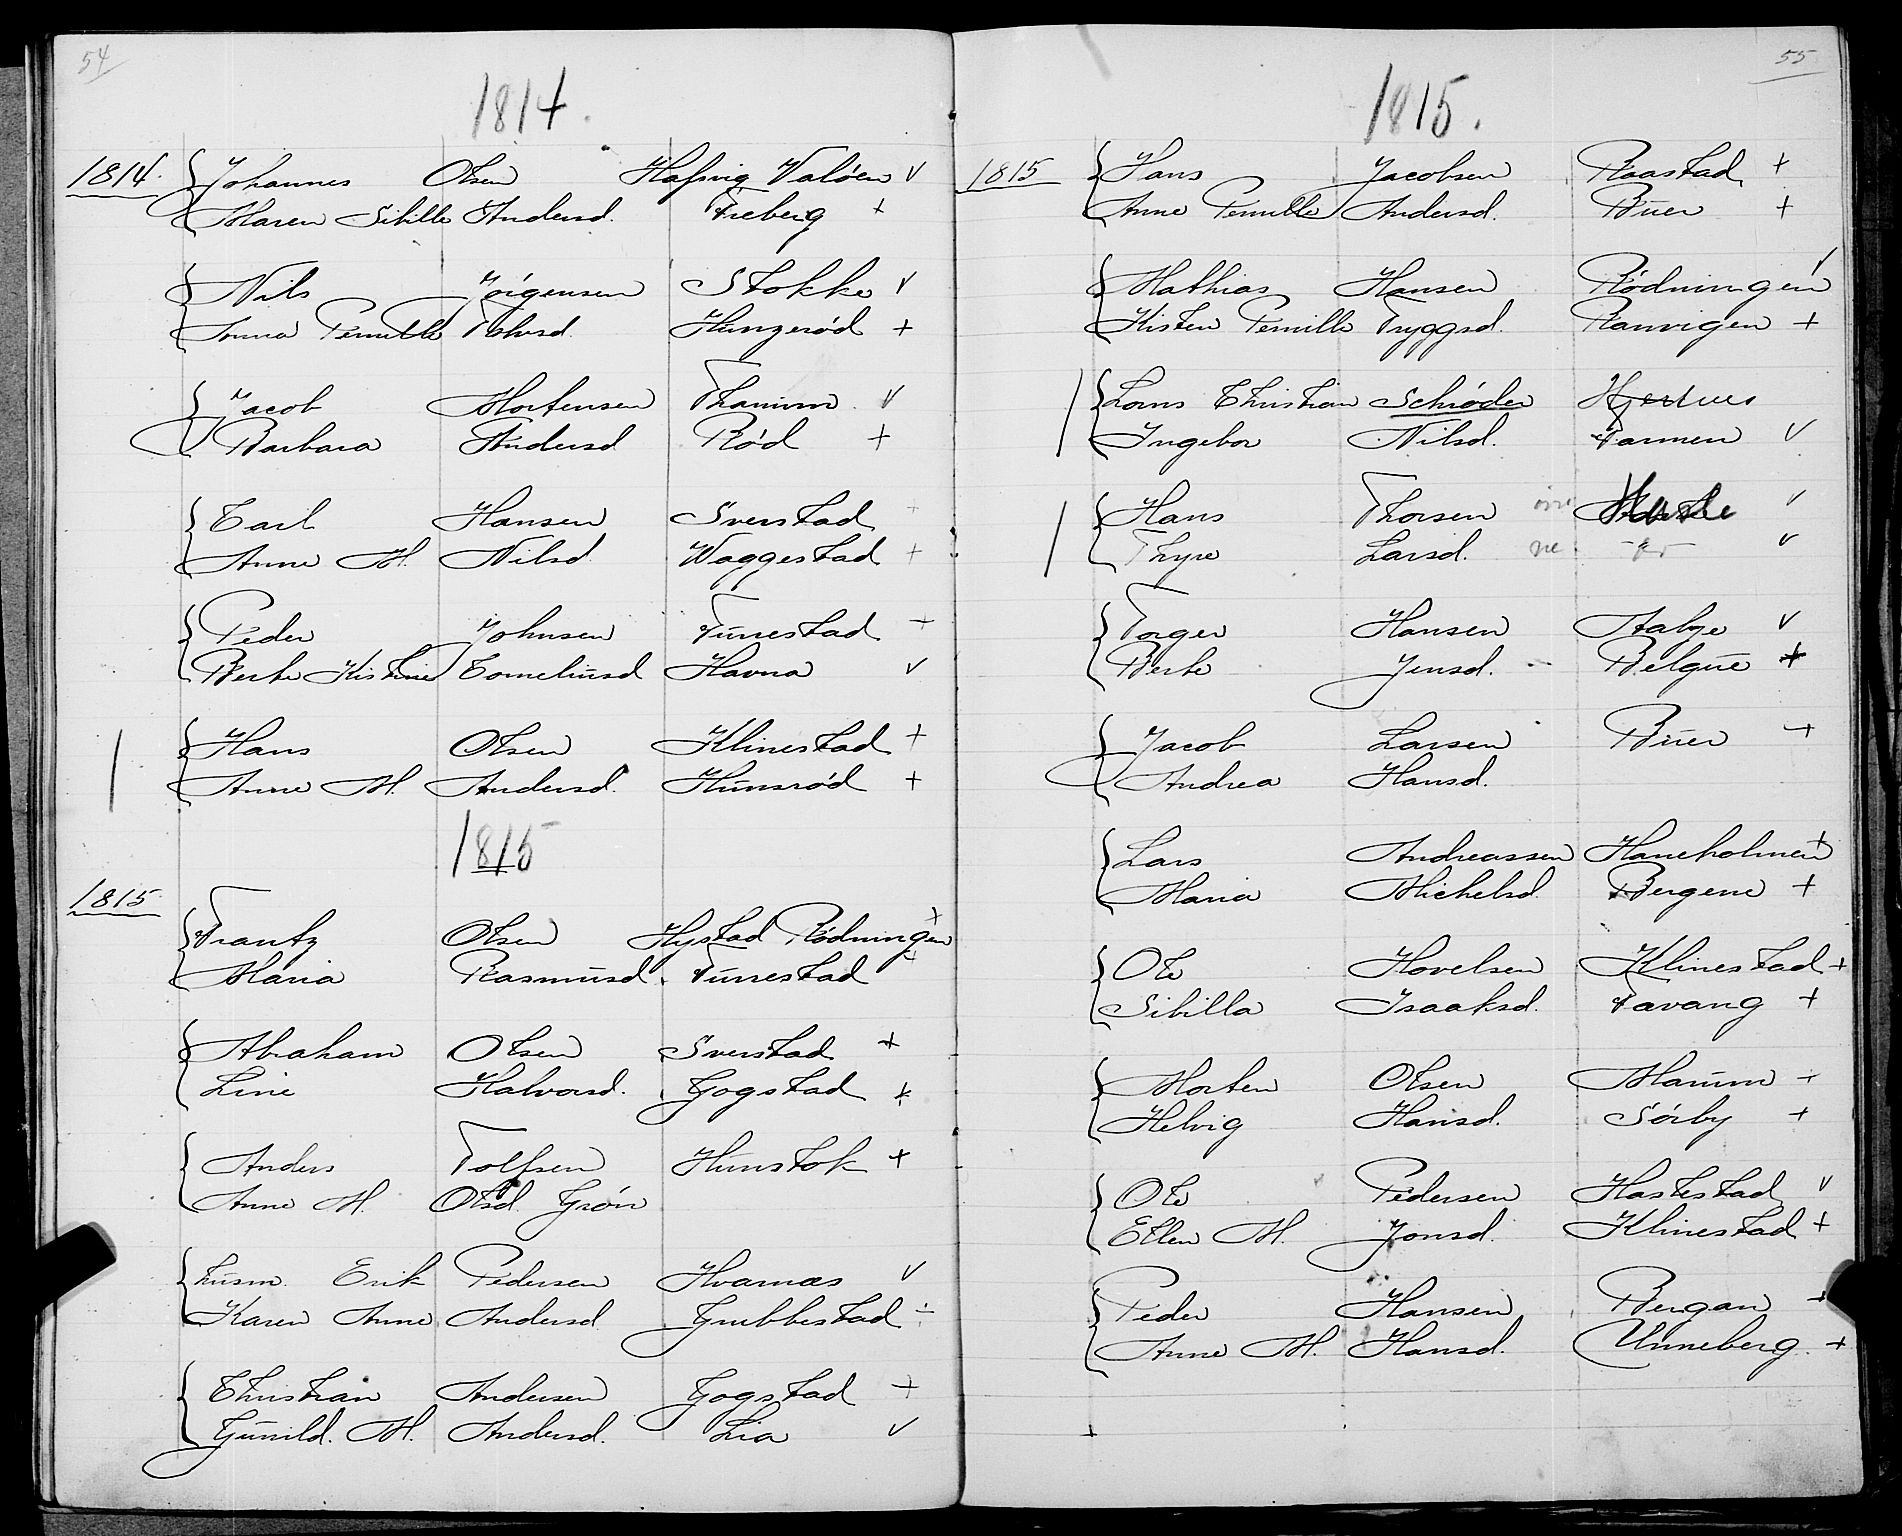 54
1814.
1814. Johannes Olsen Hafsvig Valöen v
Maren Sibille Andersd. Freberg +
Nils Jörgensen Stokke v
Anna Pernille Tolvsd. Hunzeröd +
Jacob Mortensen Thanum v
Barbara Andersd Röd +
Carl Hansen Sverstad +
Anne M. Nilsd. Waggestad +
Peder Johnsen Furrestad +
Berte Kistine Corneliusd Havna v
Hans Olsen Klinestad +
Anne M. Andersd. Hunsröd +
1815
1815. Frantz Olsen Hystad Rödningen +
Maria Rasmusd. Furrestad +
Abraham Olsen Sverstad +
Line Halvorsd. Gogstad +
Anders Tolfsen Hunstok +
Anne M. Olsd. Grön
husm. Erik Pedersen Hvarnæs v
Karen Anne Andersd. Grubbestad ÷
Christian Andersen Gogstad +
Gunild. M. Andersd. Lia v
55
1815.
1815 Hans Jacobsen Raastad +
Anne Pernille Andersd. Buer +
Mathias Hansen Rödningen v
Kisten Pernille Tryggsd. Ranvigen +
Lorns Christian Schröder Hjertnes
Ingebor Nilsd. Farmen v
Hans Thorsen Hasle v
Thyre Larsd. v
Torger Hansen Stabye v
Berte Jensd. Belgue +
Jacob Larsen Buer +
Andrea Hansd.
Lars Andreassen Haneholmen +
Maria Michelsd. Bergene +
Ole Hovelsen Klinestad +
Sibilla Isaaksd. Favang +
Morten Olsen Marum +
Helvig Hansd. Sörby +
Ole Pedersen Hastestad v
Ellen M. Jonsd. Klinestad +
Peder Hansen Bergan +
Anne M. Hansd. Unneberg. +